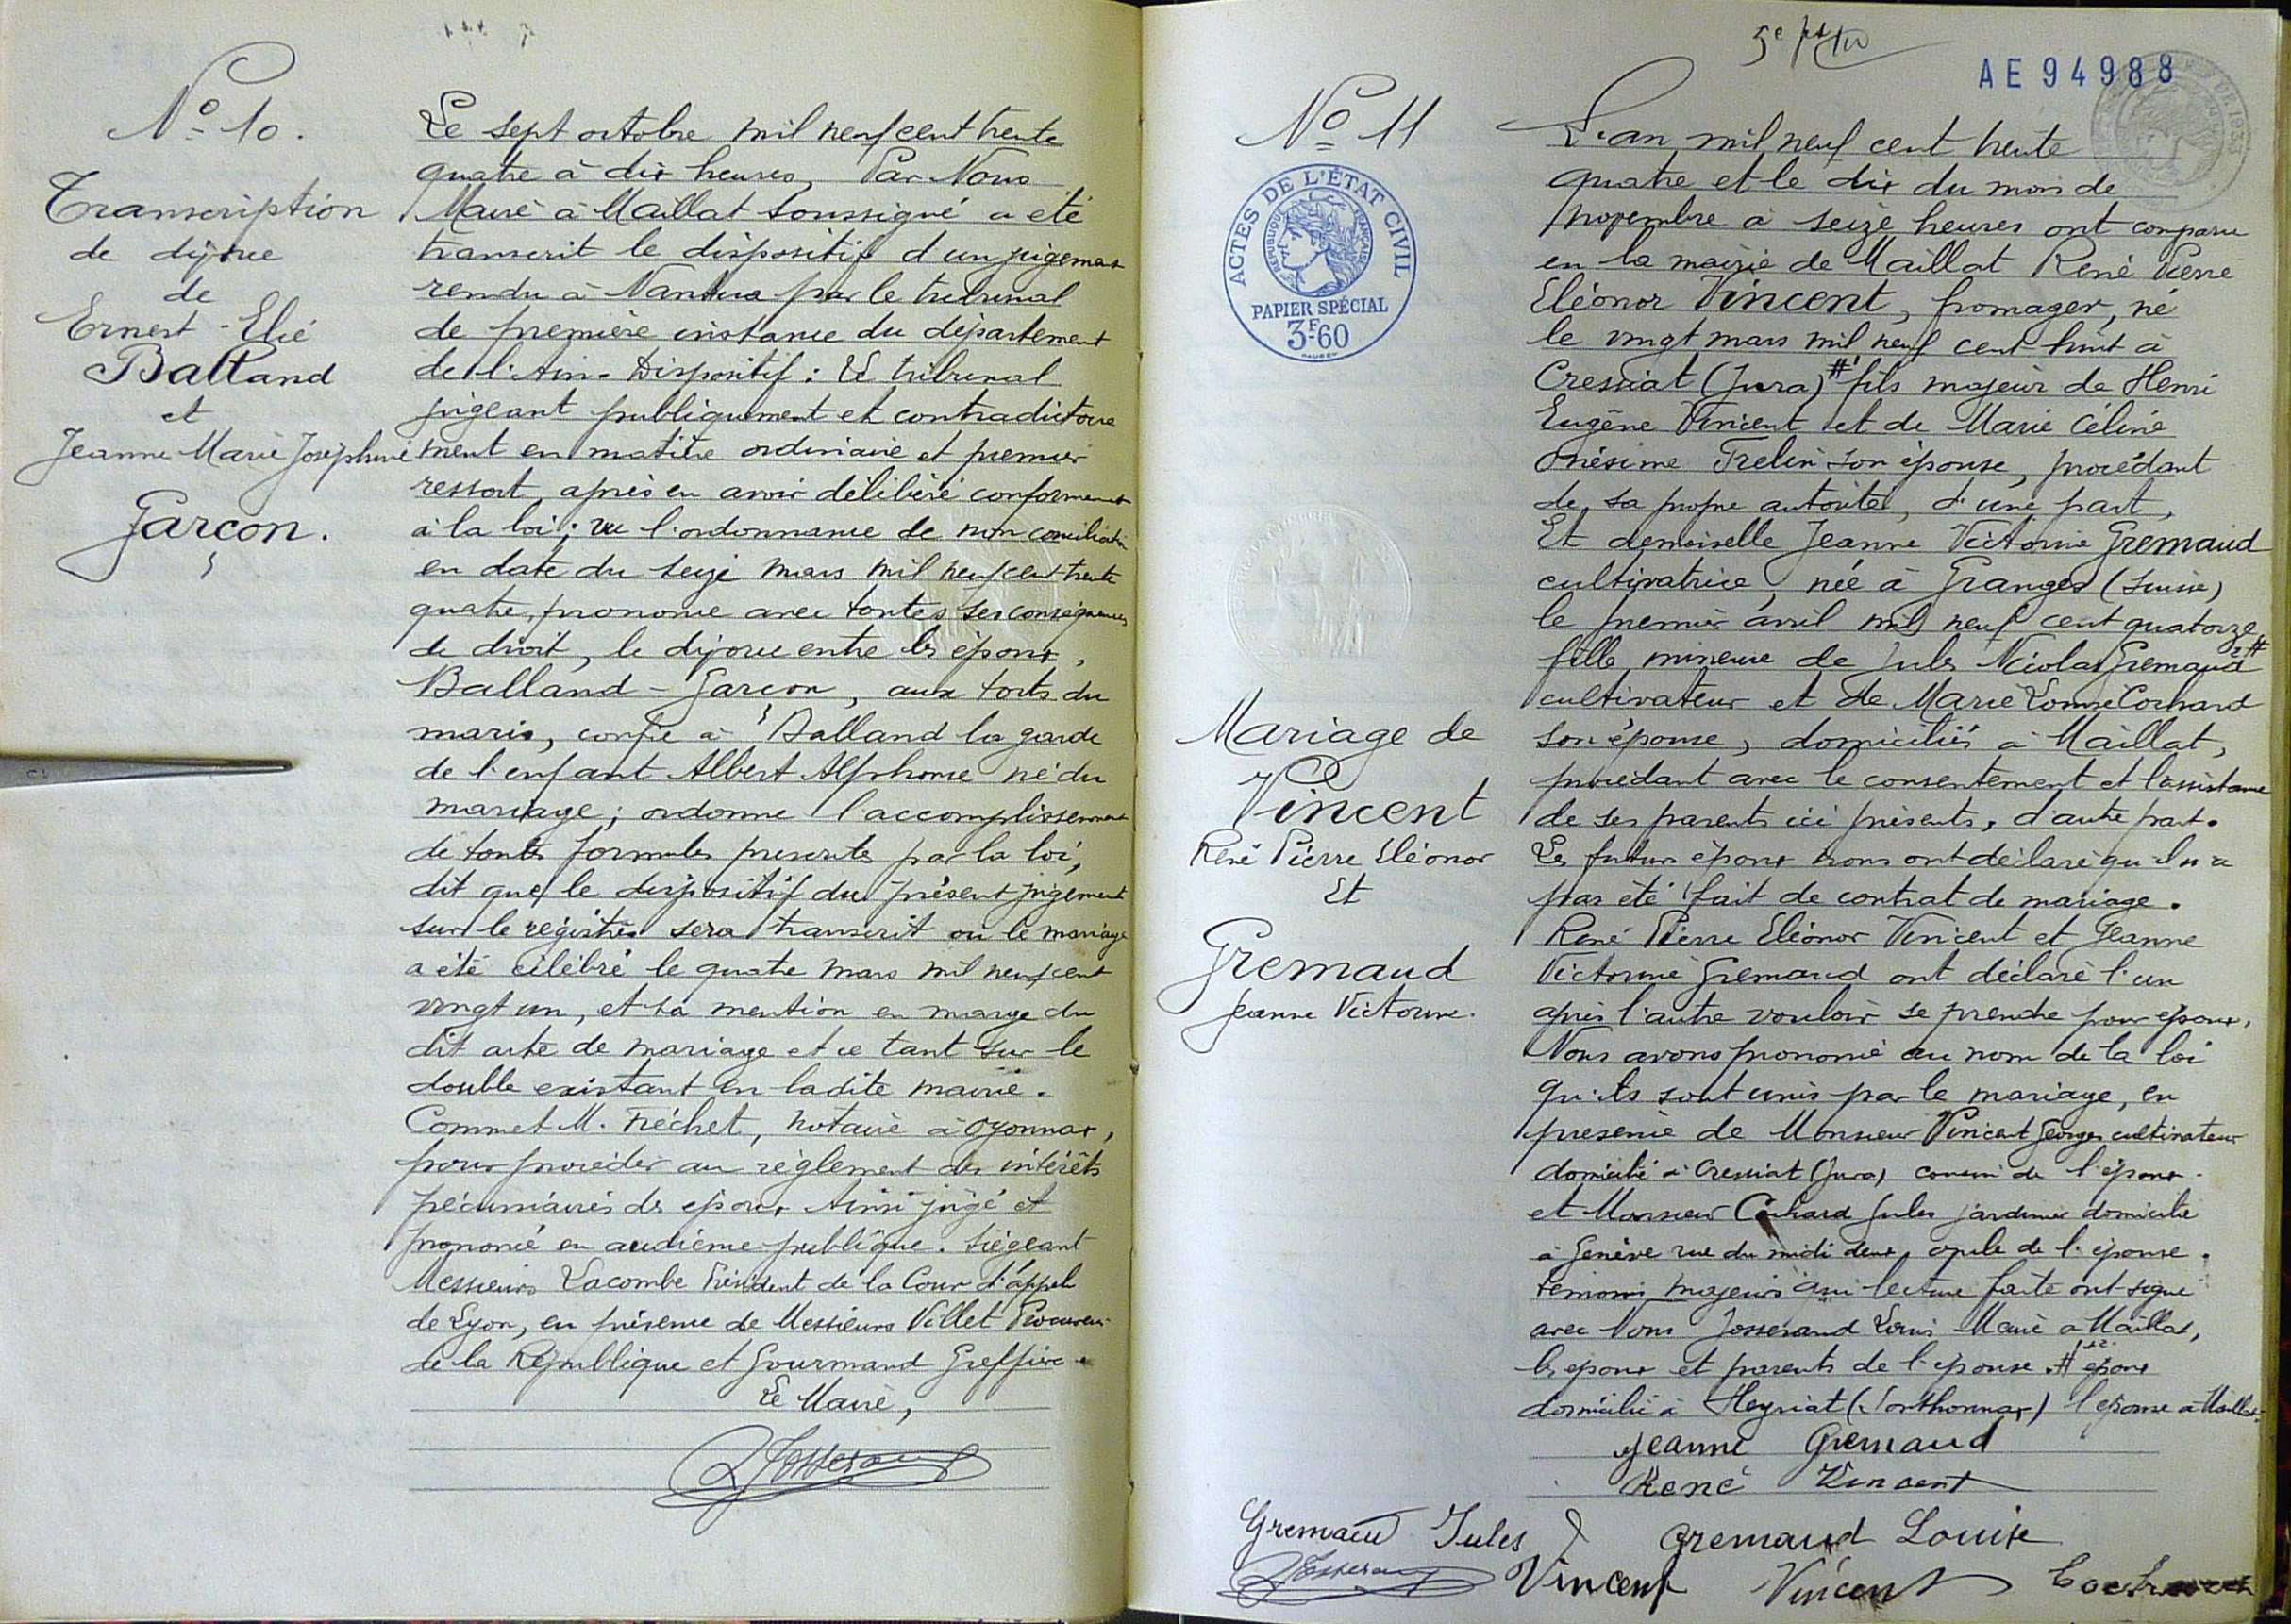 No 10.
Transcription
de divorce
de
Ernest-Elie
Balland
et
Jeanne Marie Joséphine
Garcon.
Le sept octobre mil neuf cent trente
quatre à dix heures, Par Nous
Maire à Maillat soussigné a été
transcrit le dispositif d'un jugement
rendu à Nantua par le tribunal
de première instance du département
de l'Ain. Dispositif : Le tribunal
jugeant publiquement et contradictoire
ment en matière ordinaire et premier
ressort, après en avoir délibéré conformement
à la loi ; vu l'ordonnance de non conciliation
en date du seize mars mil neuf cent trente
quatre, prononce avec toutes ses conséquences
de droit, le divorce entre les époux,
Balland-Garçon, aux torts du
maris, confie à Balland la garde
de l'enfant Albert Alphonse né du
mariage ; ordonne l'accomplissement
de toutes formules prescrites par la loi,
dit que le dispositif du présent jugement
sur le registre sera transcrit où le mariage
a été célébré le quatre mars mil neuf cent
vingt un, et sa mention en marge du
dit acte de mariage et ce tant sur le
double existant en ladite mairie.
Commet M. Fréchet, notaire à Oyonnax,
pour procéder au règlement des intérêts
pécuniaires des époux. Ainsi jugé et
prononcé en audience publique. Siégeant
Messieurs Lacombe Président de la Cour d'appel
de Lyon, en présence de Messieurs Villet Procureur
de la République et Gourmand Greffier.
Le Maire,
L Josserand
5e
AE 94988
No 11
ACTES DE L'ÉTAT CIVIL
RÉPUBLIQUE FRANÇAISE
PAPIER SPÉCIAL
3F60
Mariage de
Vincent
René Pierre Eléonor
Et
Gremaud
Jeanne Victorine.
L'an mil neuf cent trente
quatre et le dix du mois de
novembre à seize heures ont comparu
en la mairie de Maillat René Pierre
Eléonor Vincent, fromager, né
le vingt mars mil neuf cent huit à
Cressiat (Jura) #1 fils majeur de Henri
Eugène Vincent et de Marie Céline
Onésime Trelin son épouse, procédant
de sa propre autorité, d'une part,
Et demoiselle Jeanne Victorine Gremaud
cultivatrice, née à Granges (Suisse)
le premier avril mil neuf cent quatorze
fille mineure de Jules Nicolas Gremaud 2#
cultivateur et de Marie Louise Cochard
son épouse, domiciliés à Maillat,
procédant avec le consentement et l'assistance
de ses parents ici présents, d'autre part.
Les futurs époux nous ont déclaré qu'il n'a
pas été fait de contrat de mariage.
René Pierre Eléonor Vincent et Jeanne
Victorine Gremaud ont déclaré l'un
après l'autre vouloir se prendre pour époux,
Nous avons prononcé au nom de la loi
qu'ils sont unis par le mariage, en
présence de Monsieur Vincent Georges cultivateur
domicilié à Cressiat (Jura) cousin de l'époux.
et Monsieur Cochard Jules jardinier domicilié
à Genève rue du midi deux, oncle de l'épouse.
témoins majeurs qui lecture faite ont signé
avec Nous Josserand Louis Maire à Maillat,
les époux et parents de l'épouse. # époux
domicilié à Heyriat (Sonthonnax) l'épouse à Maillat.
Jeanne Gremaud
René Vincent
Gremaud Jules
Gremaud Louise
L Josserand
Vincent
Vincent